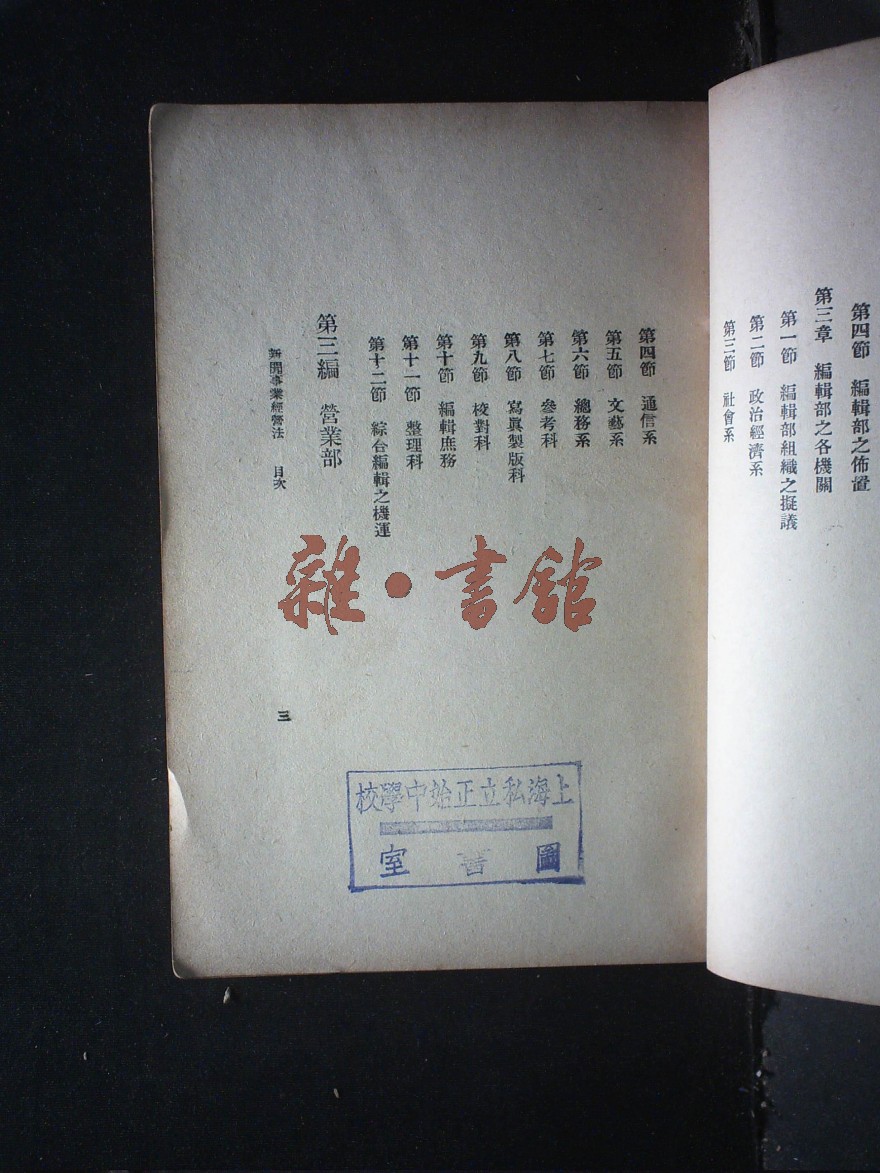 第四節　編輯部之佈置
第三章　編輯部之各機關
第一節　編輯部組織之擬議
第二節　政治經濟系
第三節　社會系
第四節　通信系
第五節　文藝系
第六節　總務系
第七節　參考科
第八節　寫眞製版科
第九節　校對科
第十節　編輯庶務
第十一節　整理科
第十二節　綜合編輯之機運
第三編　營業部
新聞事業經營法　目次
三
雜•書館
上海私立正始中學校
圖書室